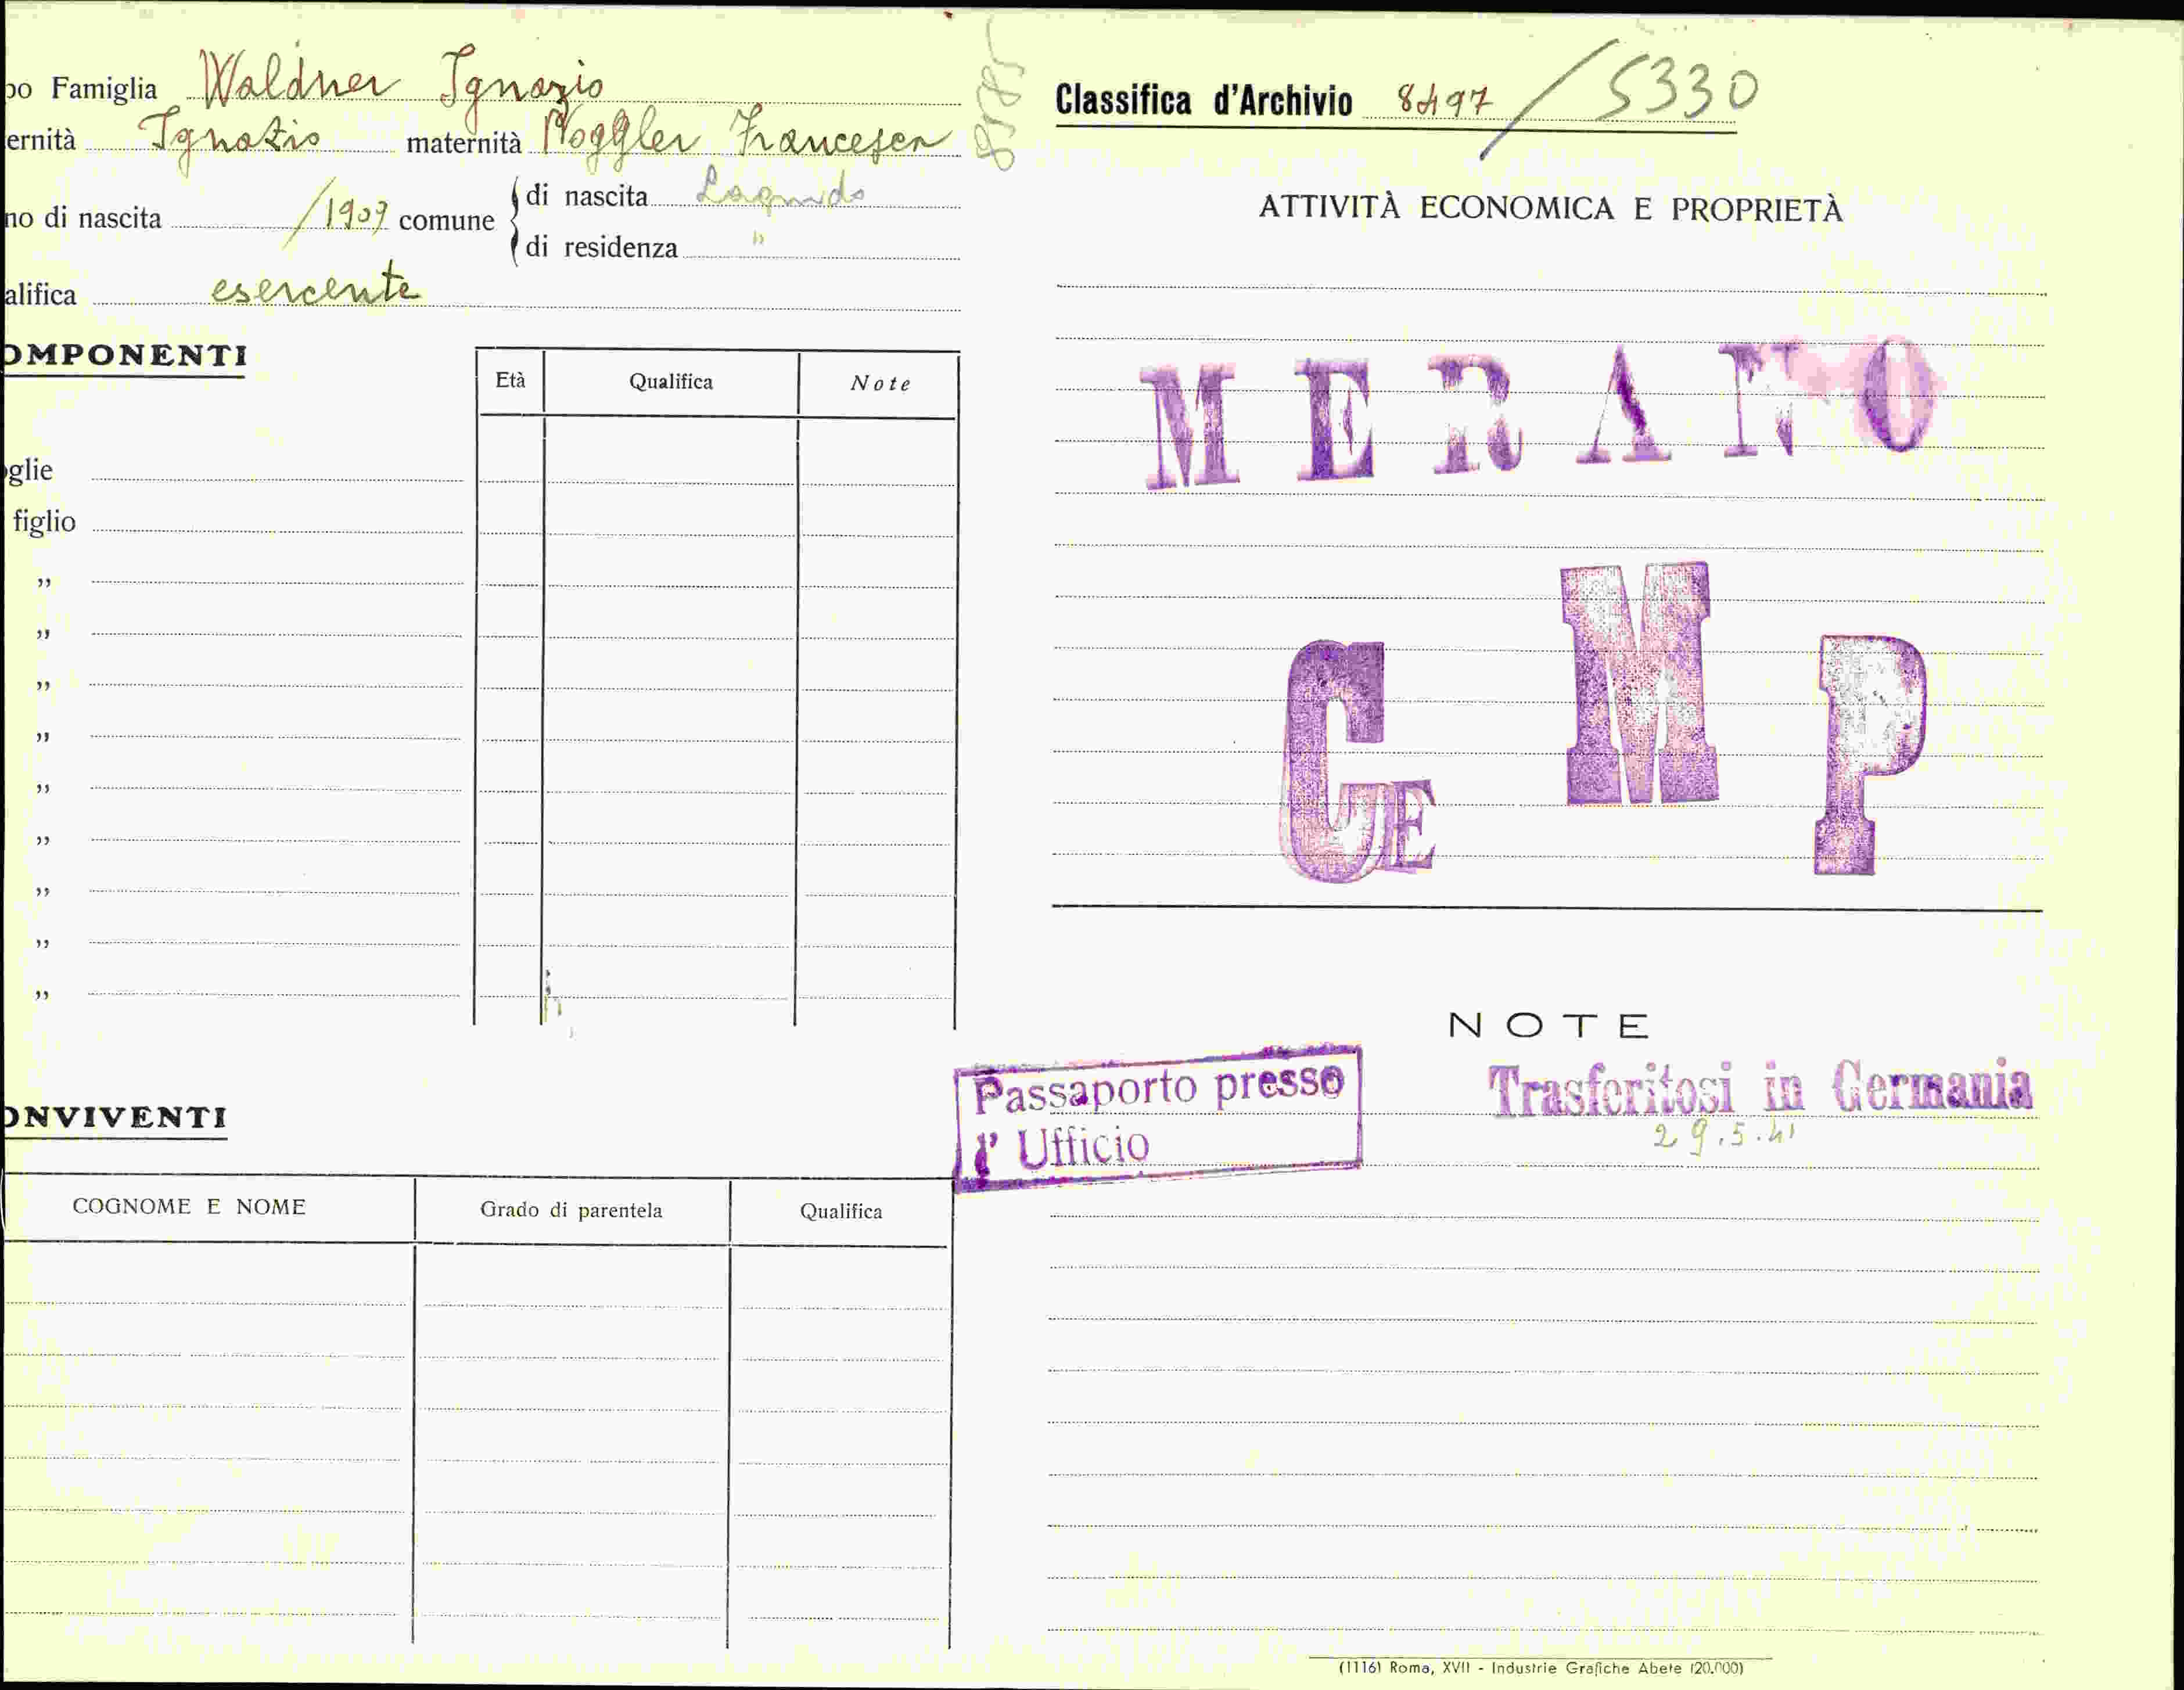 po Famiglia Waldner Ignazio
ernità Ignazio maternità Noggler Francesca
no di nascita /1909 comune
di nascita Lagundo
di residenza "
alifica esercente
OMPONENTI
Età Qualifica Note
glie
figlio
”
”
”
”
”
”
”
”
”
ONVIVENTI
COGNOME E NOME Grado di parentela Qualifica
Classifica d'Archivio 8497 / 5330
ATTIVITÀ ECONOMICA E PROPRIETÀ
MERANO
C E M P
NOTE
Passaporto presso
l' Ufficio
Trasferitosi in Germania
29.5.41
(1116) Roma, XVII - Industrie Grafiche Abete (20.000)